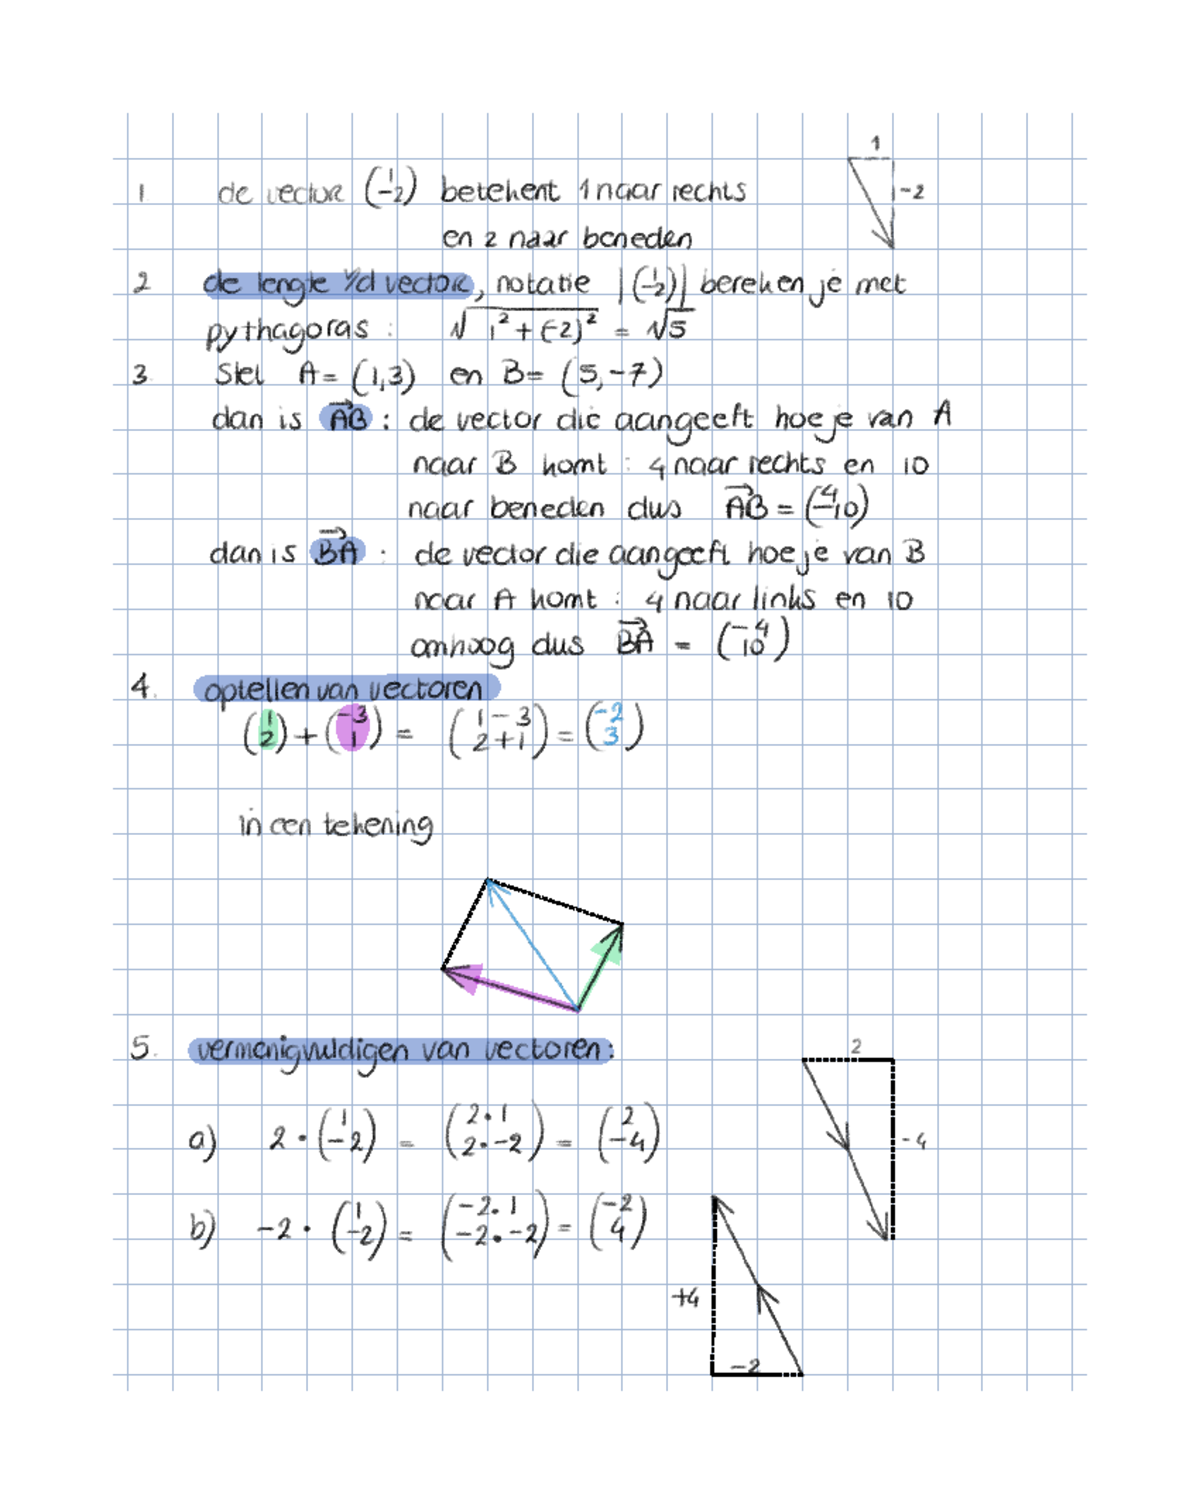 1
1 de vector (1 -2) betekent 1 naar rechts -2
en 2 naar beneden
2 de lengte v/d vector, notatie |(1 -2)| bereken je met
pythagoras : √1² + (-2)² = √5
3 Stel A = (1,3) en B = (5,-7)
dan is AB : de vector die aangeeft hoe je van A
naar B komt : 4 naar rechts en 10
naar beneden dus AB = (4 -10)
dan is BA : de vector die aangeeft hoe je van B
naar A komt : 4 naar links en 10
omhoog dus BA = (-4 10)
4. optellen van vectoren
(1 2) + (-3 1) = (1-3 2+1) = (-2 3)
in een tekening
5. vermenigvuldigen van vectoren:
2
a) 2 · (1 -2) = (2·1 2·-2) = (2 -4)
-4
b) -2 · (1 -2) = (-2·1 -2·-2) = (-2 4)
+4
-2